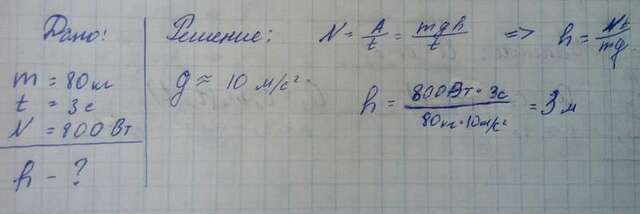 Дано:
m = 80кг
t = 3с
N = 800Вт
h - ?
Решение: N = A/t = mgh/t => h = Nt/mg
g ≈ 10 м/с²
h = 800Вт · 3с / 80кг · 10м/с² = 3м